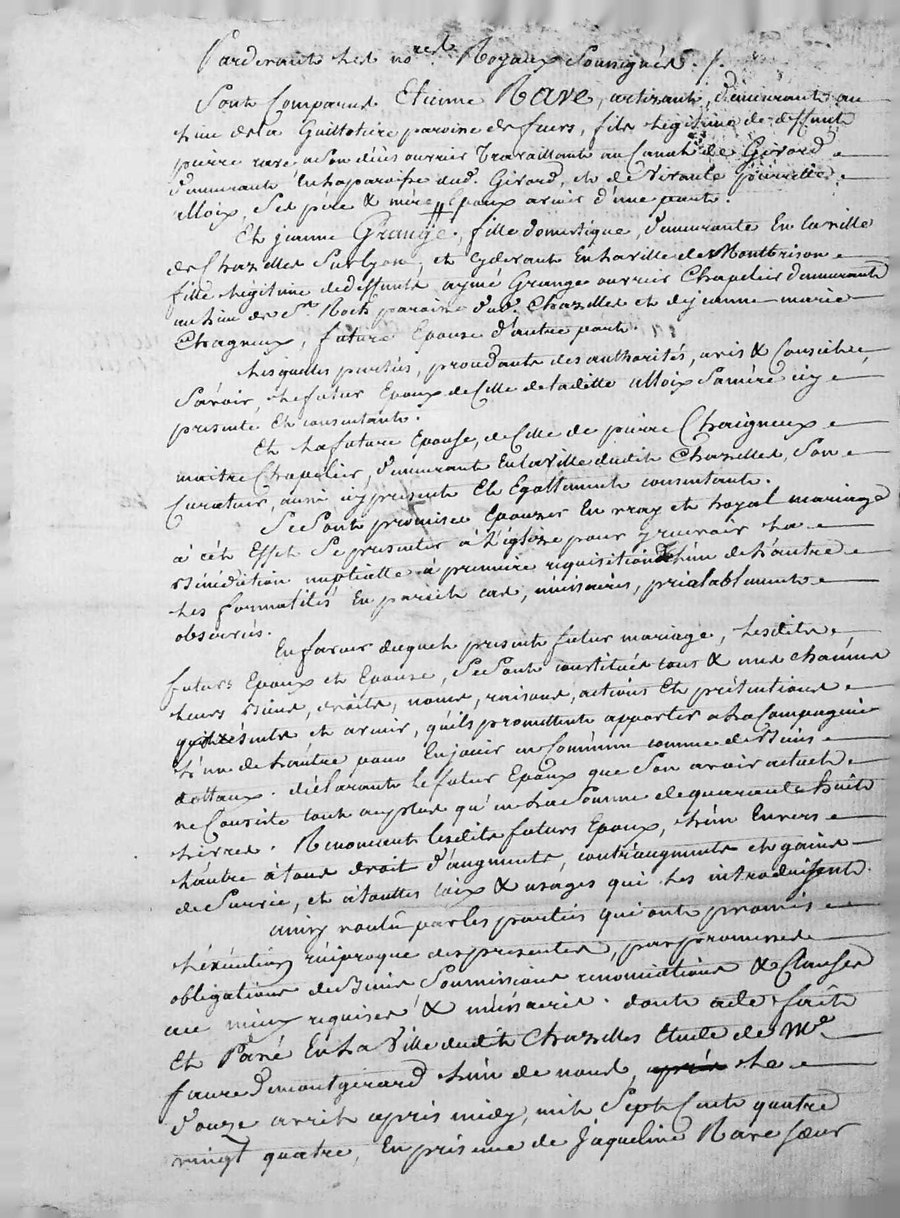 Pardevant les no.res Royaux Soussignés./.
Sont Comparus Etienne Rave, artizant, demeurant au
lieu de la Guillotiere paroisse de feurs, fils legitime de deffunt
pierre rave a son décès ouvrier Travaillant au Canal de Givord
demeurant En la paroisse dud. Givord, et de vivante pierrette
alloix, Ses pere & mere, Epoux avenir d'une part.
Et jeanne Grange, fille domestique, demeurante En la ville
de Chazelles Sur lyon, et cydevant En la ville de Montbrison
fille legitime de deffunt aymé Grange ouvrier Chapelier demeurant
au lieu de St Roch paroisse dud. Chazelles et de jeanne-marie
Chagneux, future Epouse d'autre part.
Lesquelles parties, procedantes des authorités, avis & Conseils,
Savoir, le futur Epoux de Celle de ladite alloix Sa mère icy
presente Et consentante.
Et la future Epouse, de Celle de pierre Chaigneux
maitre Chapelier, demeurant En la ville dudit Chazelles, Son
Curateur, aussi icy present Et Egallement consentant.
Se Sont promises Epouzer En vray et loyal mariage
à cet Effet Se presenter à l'eglize pour y recevoir la
Bénédiction nuptialle à premiere requisition de l'un de l'autre
les formalités En pareil cas, nécessaires, préalablement
observées.
En faveur duquel present futur mariage, lesdits
futurs Epoux et Epouse, Se Sont constitués tous & uns chacuns
leurs Biens, droits, noms, raisons, actions Et prétentions
presents et avenir, qu'ils promettent apporter a la Compagnie
l'un de l'autre pour En jouir en Commun comme de Biens
dottaux. déclarant le futur Epoux que Son avoir actuel
ne Consiste tout au plus qu'en la Somme de quarante huit
livres. Renoncent lesdits futurs Epoux, l'un Envers
l'autre à tous droit d'augment, contraugment et gains
de Survie, et à touttes loix & usages qui les introduisent.
ainsy voulû par les parties qui ont promis
l'exécution réciproque des presentes, par promesses
obligations de Biens Soumissions renonciations & Clauses
au mieux requises & nécessaires. dont acte fait
Et Passé En la Ville dudit Chazelles Etude de Me
faure Demontgirard l'un de nous, le
douze avril après midy, mil Sept Cent quatre
vingt quatre, En présence de Jaqueline Rave Soeur